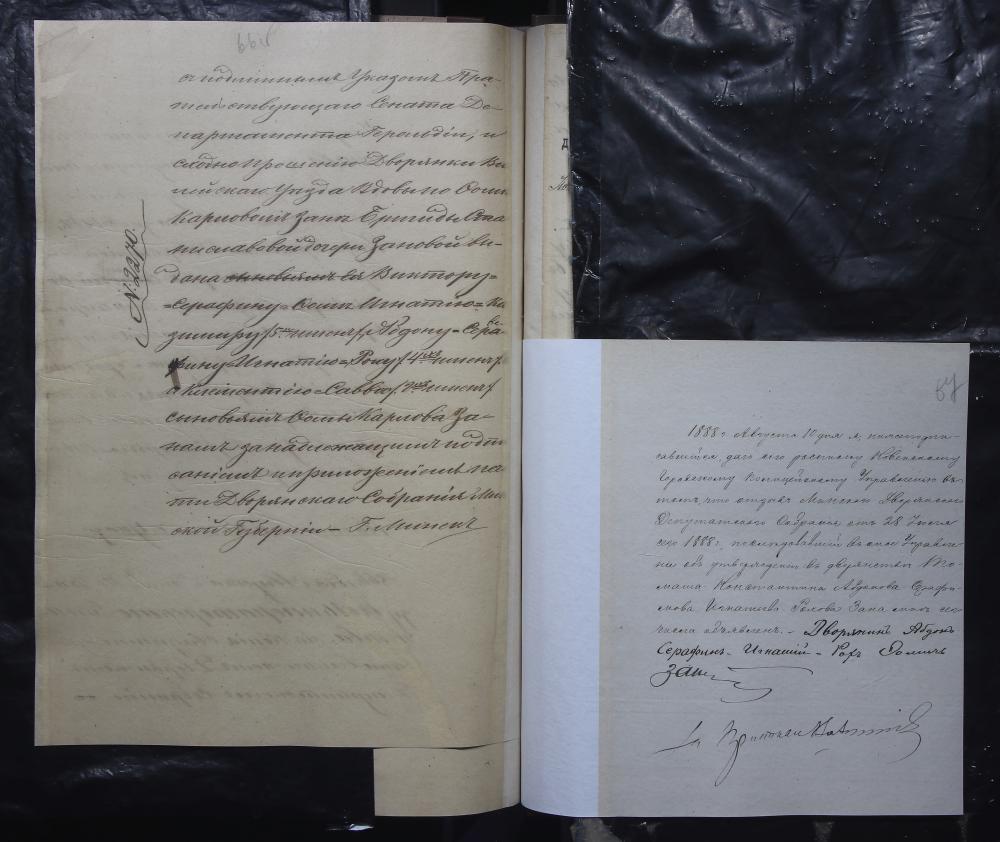 66об
съ подлиннымъ Указомъ Пра-
вительствующаго Сената Де-
партамента Герольдіи, и
слѣдно прошенію Дворянки Ви
лейскаго уѣзда вдовы по Осипѣ
Карловомъ Занѣ Бригиды Ста
ниславовой дочери Зановой вы-
дана сыновьямъ ея Виктору=
=Серафину=Осипу Игнатію=Ка
зимиру /5ти именъ/, Абдону=Сера
фину Игнатію=Року /4хъ именъ/
и Климентію=Саввѣ /2хъ именъ/
сыновьямъ Осипа Карлова За-
намъ за надлежащимъ подпи
саніемъ и приложеніемъ печа
ти Дворянскаго Собранія Мин
ской Губерніи— Г. Минскъ
№ 2270.
67
1888 г Августа 10 дня я, нижеподпи-
савшійся, далъ сію росписку Ковенскому
Городскому Полицейскому Управленію въ
томъ, что отзывъ Минскаго Дворянскаго
Депутатскаго Собранія отъ 28 Іюля
сего 1888 г, послѣдовавшій въ сіе Управле-
ніе объ утвержденіи въ дворянствѣ Ѳо-
маша Константина Абдонова Серафи-
мова Игнатьева Рохова Зана мнѣ сего
числа объявленъ. - Дворянинъ Абдонъ
Серафинъ - Игнатій - Рохъ Осиповъ
Занъ